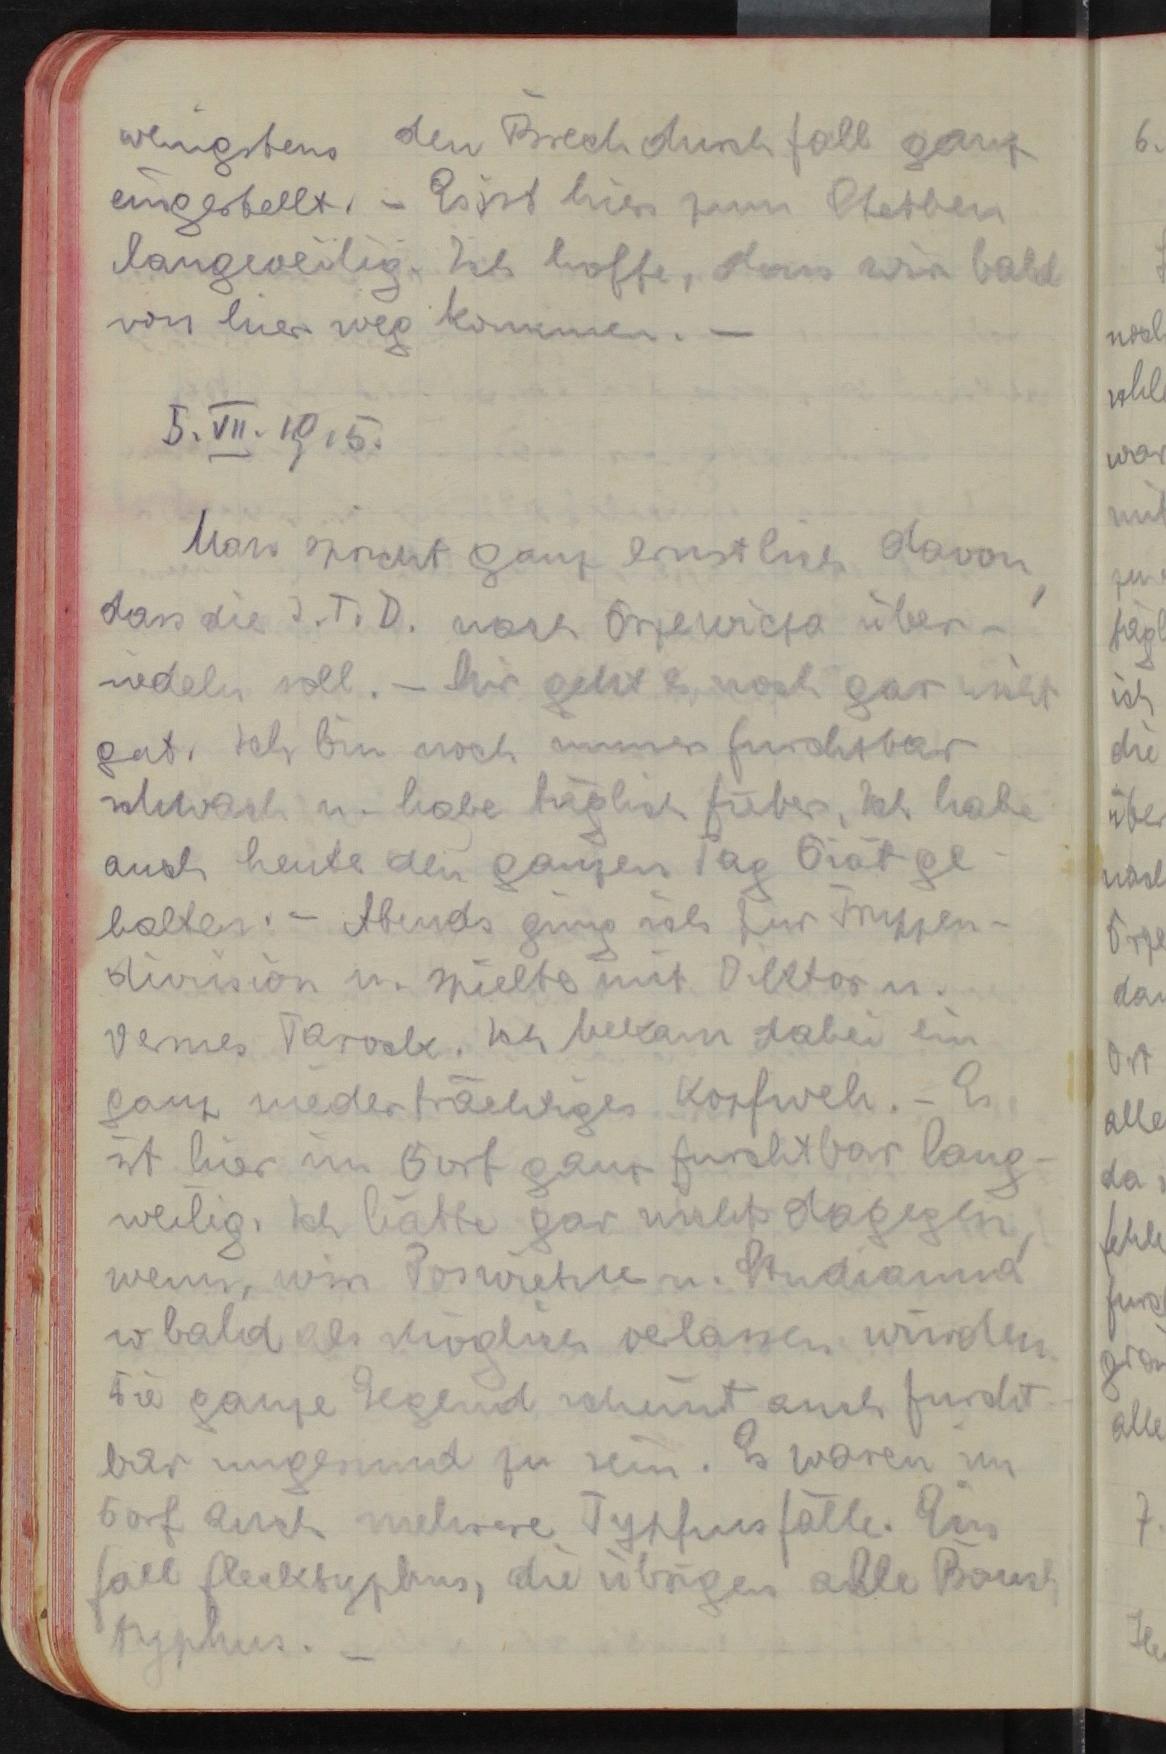 wenigstens den Brechdurchfall ganz
eingestellt. – Es ist hier zum Sterben
langeweilig. Ich hoffe, dass wir bald
von hier weg kommen. —
5. VII. 1915.
Man spricht ganz ernstlich davon,
dass die I.T.D. nach Orzewicza über-
siedeln soll. – Mir geht es noch gar nicht
gut. Ich bin noch immer furchtbar
schwach u. habe täglich Fieber. Ich habe
auch heute den ganzen Tag Diät ge-
halten. – Abends ging ich zur Truppen-
division u. spielte mit Viktor u.
Vermes Tarock. Ich bekam dabei ein
ganz niederträchtiges Kopfweh. – Es
ist hier im Dorf ganz furchtbar lang-
weilig. Ich hätte gar nichts dagegen,
wenn, wir u.
so bald als möglich verlassen würden.
Die ganze Gegend scheint auch furcht-
bar ungesund zu sein. Es waren im
Dorf auch mehrere Typhusfälle. Ein
Fall Flecktyphus, die übrigen alle Bauch
typhus. –